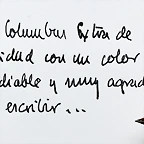 Columbus Extra de
idad con un color
diable y muy agrad
escribir...